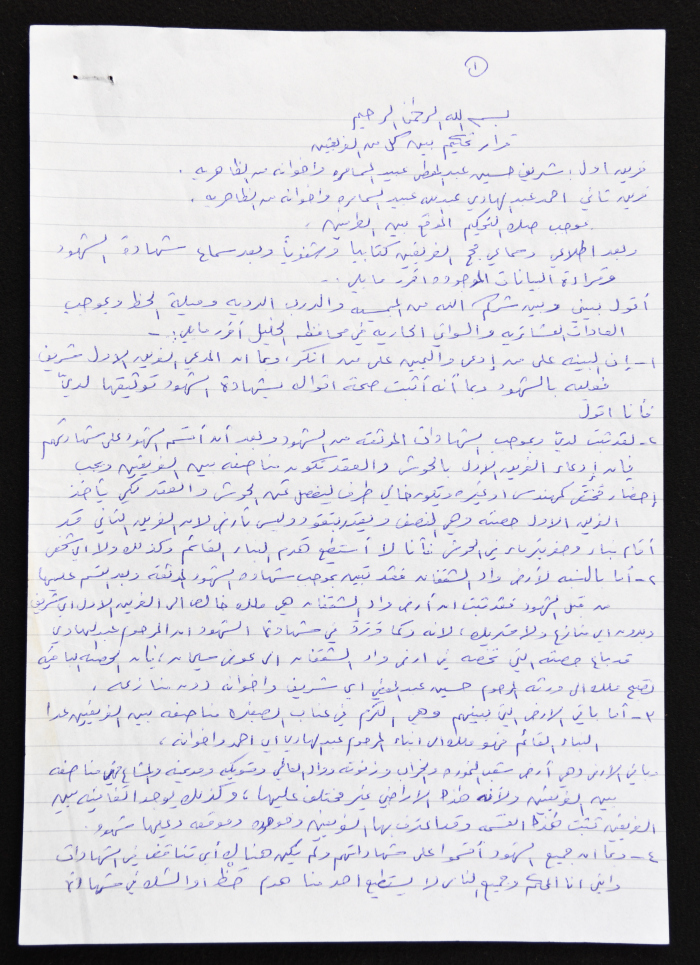 ١
بسم الله الرحمن الرحيم
قرار تحكيم بين كل من الفريقين
فريق اول: شريف حسين عبد المعطي عبيد السمامره واخوانه من الظاهريه.
فريق ثاني احمد عبد الهادي عبدالله عبيد السمامره واخوانه من الظاهريه.
بموجب صك التحكيم الموقع بين الطرفين.
وبعد اطلاعي وسماعي حجج الفريقين كتابيا وشفوياً وبعد سماع شهادة الشهود
وقراءة البيانات الموجوده اقرر ما يلي:-
أقول بيني وبين شركم الله من والدرب الرديه وميلة الحظ وبموجب
العادات العشائريه والسواني الجاريه في محافظة الخليل أقرر ما يلي:-
١- إن البينه على من إدعى واليمين على من انكر، وبما ان المدعي الفريق الاول شريف
فعليه بالشهود وبما أنه أثبت صحة اقواله بشهادة الشهود توثيقها لديّ
فأنا اقول
٢- لقد ثبت لديّ وبموجب الشهادات الموثقه من الشهود وبعد أن أقسم الشهود على شهادتهم
فإن إدعاء الفريق الاول بالحوش والعقد تكون مناصفه بين الفريقين ويجب
إحضار مختص كمهندس او غيره ويكون خالي طرف ليفصل عن الحوش والعقد لكي يأخذ
الفريق الاول حصته وهي النصف ويقدر بنقود وليس بأرض لان الفريق الثاني قد
أقام بناء وحفر بئر ماء في الحوش فأنا لا أستطيع هدم البناء القائم وكذلك ولا اي شخص
٢- أما بالنسبه لأرض واد الشقفان فقد تبين بموجب شهادة الشهود الموثقه وبعد القسم عليها
من قبل الشهود فقد ثبت ان أرض واد الشقفان هي ملك خالص الى الفريق الاول اي شريف
وبدون اي منازع ولا شريك، لانه وكما قرر في شهادة الشهود ان المرحوم عبد الهادي
قد باع حصته التي تخصه في ارض واد الشقفان الى عوض سليمان، فإن الحصه الباقيه
تصبح ملك الى ورثة المرحوم حسين عبد المعطي اي شريف واخوانه دون منازعه.
٣- أما باقي الارض التي بينهم وهي الكرم في عناب الصغيره مناصفه بين الفريقين عدا
البناء القائم فهو ملك الى ابناء المرحوم عبد الهادي اي احمد واخوانه،
وباقي الارض وهي أرض شعب والخراب وزنوته وواد العالمي وشويكه والمشاع فهي مناصفه
بين الفريقين ولأنه هذه الاراضي غير مختلف عليها، وكذلك يوجد اتفاقيه بين
الفريقين تثبت هذه القسمه وقد اعترف بها الفريقين وموجوده وموقعه وعليها شهود.
٤- وبما ان جميع الشهود أقسموا على شهاداتهم ولم يكن هناك أي تناقض في الشهادات
وإنني انا الحكم وجميع الناس لا يستطيع احد منا هدم حظ او الشك في شهادة